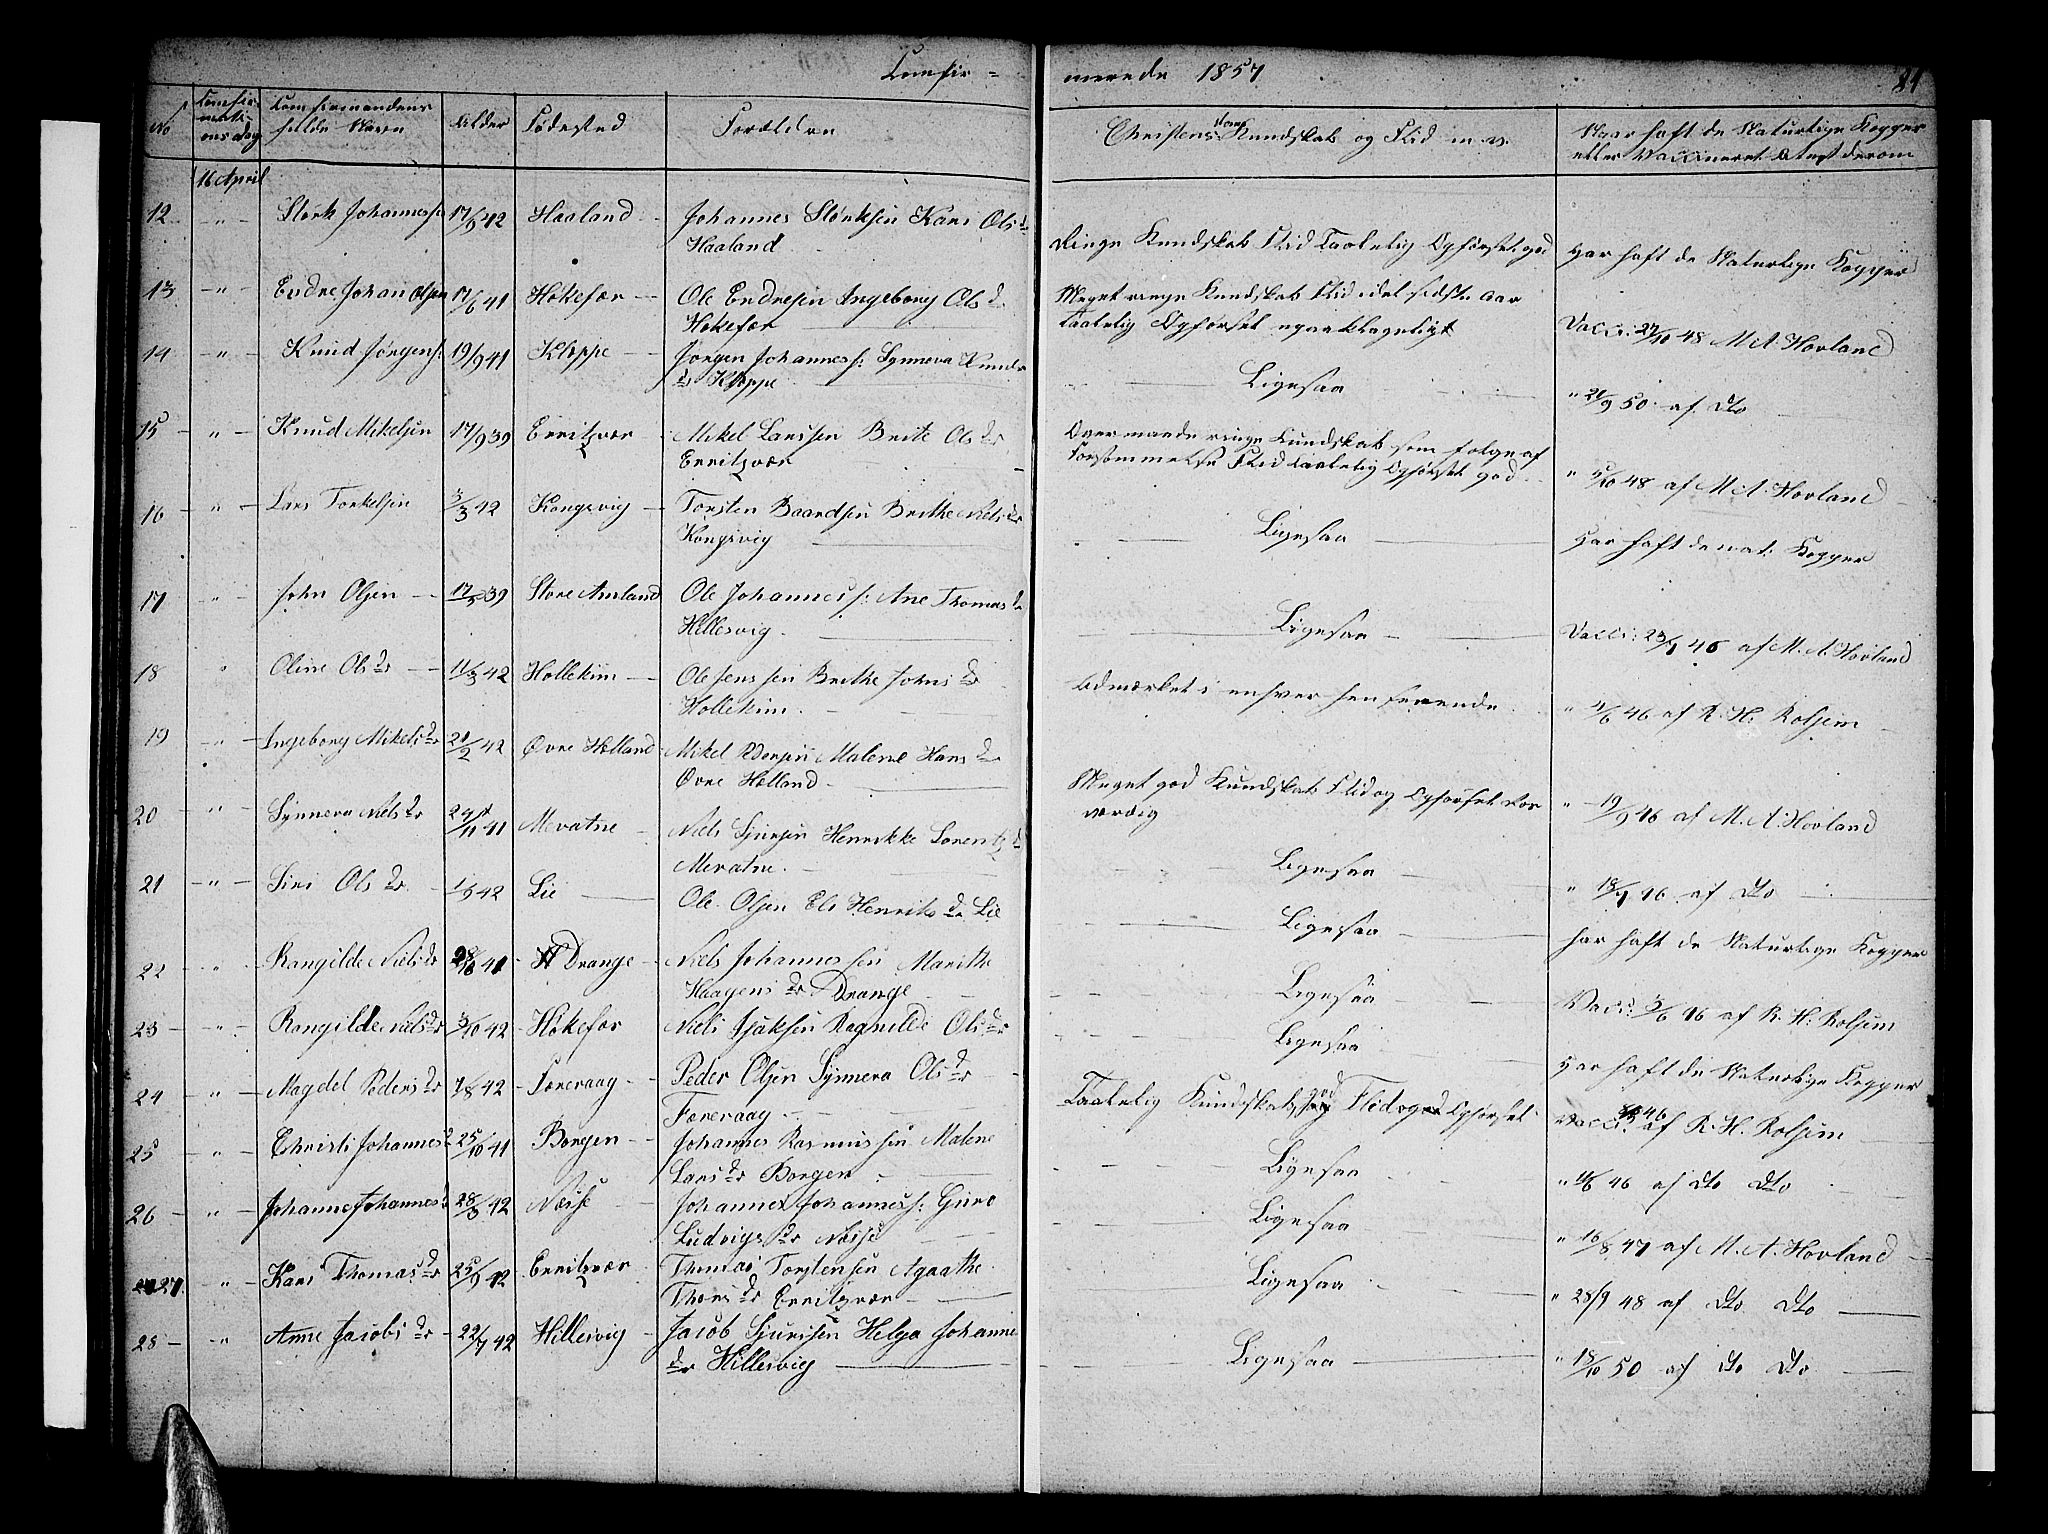 Comfir =
merede 1857
No
Comfir-
mati-
ons dag
Comfirmandens
fulde Navn
Alder
Fødested
Forældre
Christendoms Kundskab og Flid m. v.
Naar haft de Naturlige Kopper
eller Vaccineret Atest derom
16 April
12 " Størk Johannessen 17/9 42 Haaland Johannes Størksen Kari Olsdr
Haaland
Ringe Kundskab Flid Taalelig Opførsel god
Har haft de Naturlige Kopper
13 " Endre Johan Olsen 17/6 41 Høkefær Ole Endresen Ingeborg Olsd.
Høkefær
Meget ringe Kundskab Flid i det sidste Aar
taalelig Opførsel upaaklageligt
Vacci: 27/10 48 M A Hovland
14 " Knud Jørgens: 19/9 41 Kleppe Jørgen Johanness: Synneva Knuds
dr Kleppe
Ligesaa
" 21/9 50 af Dto
15 " Knud Mikelsen 17/9 39 Erritzvær Mikel Larssen Brite Olsdr
Erritzvær
Overmaade ringe Kundskab som følge af
Forsømmelse Flid taalelig Opførsel god
" 5/10 48 af M A. Hovland
16 " Lars Torkelsen 3/3 42 Kongsvig Torsten Baardsen Brithe Nielsdr
Kongsvig
Ligesaa
Har haft de nat: Kopper
17 " John Olsen 17/5 39 Store Amland Ole Johanness: Ane Thomasdr
Hillesvig
Ligesaa
Vacci: 23/9 46 af M. A. Hovland
18 " Oline Olsdr 11/3 42 Hollekim Ole Jenssen Brithe Johnsdr
Hollekim
Udmærket i enhver henseende
" 4/6 46 af R. H. Rolsem
19 " Ingeborg Mikelsdr 21/2 42 Øvre Hølland Mikel Pedersen Malene Hansdr
Øvre Hølland
Meget god Kundskab Flid og Opførsel Lov
værdig
" 19/9 46 af M. A. Hovland
20 " Synneva Nielsdr 24/11 41 Mevatne Niels Sjursen Henrikke Lorentzd
Mevatne
Ligesaa
" 18/9 46 af Dto
21 " Siri Olsdr. 1/9 42 Lie Ole Olsen Els Henriksdr Lie
Ligesaa
har haft de Naturlige Kopper
22 " Rangilde Nielsdr 28/10 41 Drange Niels Johannessen Marithe
Haagensdr Drange
Ligesaa
Vacc: 3/6 46 af R. H: Rolsem
23 " Rangilde Nielsdr 3/10 42 Høkefær Niels Isaksen Ragnilde Olsdr
Ligesaa
Har haft de Naturlige Kopper
24 " Magdel Pedersdr 7/8 42 Føreraag Peder Olsen Synneva Olsdr
Føreraag
Taalelig Kundskab god Flid og Opførsel
Vacci: 46 af R. H. Rolsem
25 " Christi Johannesd 25/10 41 Borgen Johannes Rasmussen Malene
Larsdr Borgen
Ligesaa
" 11/6 46 af Dto Dto
26 " Johanne Johannesd 28/3 42 Næsse Johannes Johanness: Guro
Ludvigsdr Næsse
Ligesaa
" 16/8 47 af M. A. Hovland
27. " Kari Thomasdr 25/9 42 Erritzvær Thomas Torstensen Agaathe
Thorsdr Erritzvær
Ligesaa
" 28/9 48 af Dto Dto
28 " Anne Jacobsdr 22/7 42 Hillesvig Jacob Sjurssen Helga Johanne
dr Hillesvig
Ligesaa
" 18/10 50 af Dto Dto